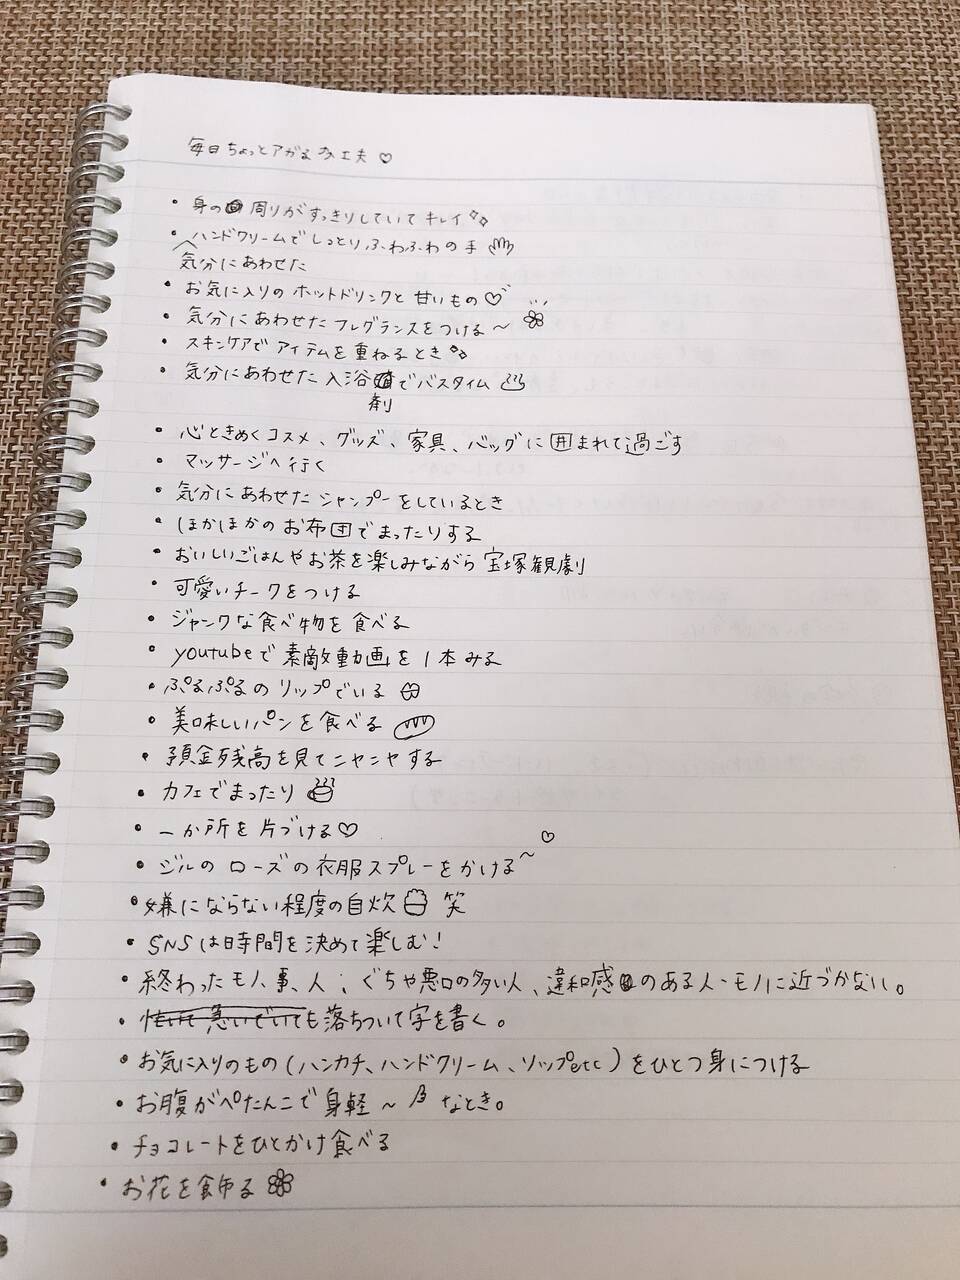 毎日ちょっとアガる工夫♡
・身の周りがすっきりしていてキレイ
・ハンドクリームでしっとりふわふわの手
気分にあわせた
・お気に入りのホットドリンクと甘いもの♡
・気分にあわせたフレグランスをつける〜
・スキンケアでアイテムを重ねるとき
・気分にあわせた入浴剤でバスタイム
・心ときめくコスメ、グッズ、家具、バッグに囲まれて過ごす
・マッサージへ行く
・気分にあわせたシャンプーをしているとき
・ほかほかのお布団でまったりする
・おいしいごはんやお茶を楽しみながら宝塚観劇
・可愛いチークをつける
・ジャンクな食べ物を食べる
・youtubeで素敵動画を1本みる
・ぷるぷるのリップでいる
・美味しいパンを食べる
・預金残高を見てニヤニヤする
・カフェでまったり
・一か所を片づける♡
・ジルのローズの衣服スプレーをかける〜♡
・嫌にならない程度の自炊 笑
・SNSは時間を決めて楽しむ!
・終わったモノ、事、人；ぐちや悪口の多い人、違和感のある人・モノに近づかない。
・急いでいても落ちついて字を書く。
・お気に入りのもの(ハンカチ、ハンドクリーム、リップetc)をひとつ身につける
・お腹がぺたんこで身軽〜なとき。
・チョコレートをひとかけ食べる
・お花を飾る